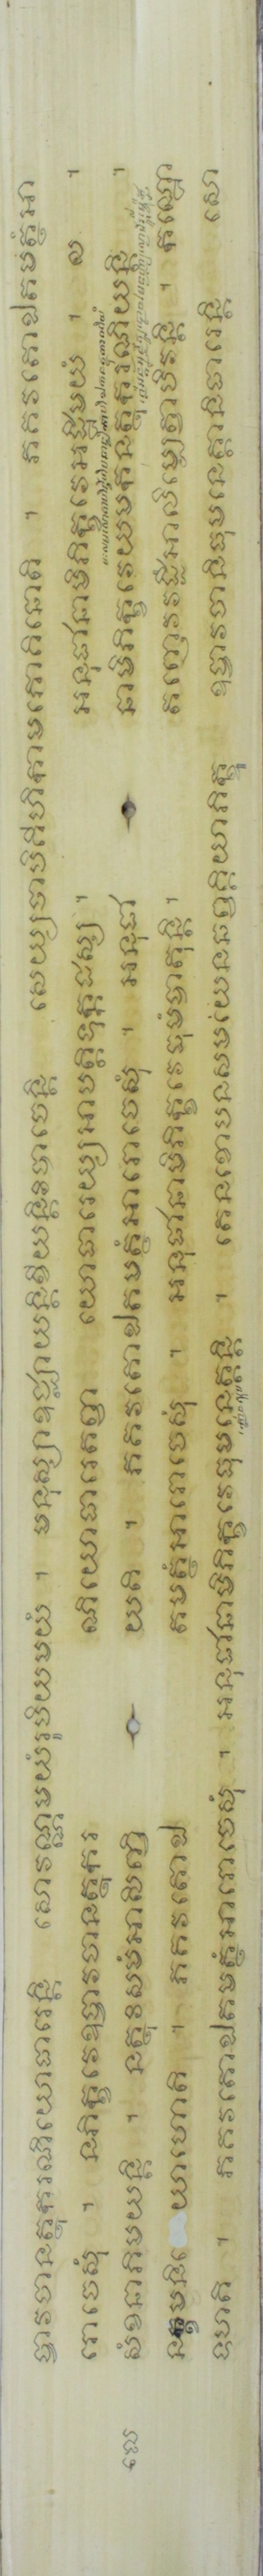 ច្ចាវចានត្ថុករណិយោធារេន្តិ សោវណ្ណមយំរូបិយមយំ ។ មនុស្សាឧជ្ឈាយន្តិខីយន្តិវិបាចេន្តិ សេយ្យថាបិគិហិកាមភោគិនោតិ ។ ភគវតោឯតមត្ថំអា
រោចេសុំ ។ នភិក្ខវេឧច្ចាវចានត្ថុករ ណិយោធារេតព្វា យោធារេយ្យអាបត្តិទុក្កដស្ស ។ អនុជានាមិភិក្ខវេអដ្ឋិមយំ ។ ល ។
សំខនាភិមយន្តិ ។ នត្ថុវិសមំអាសិញ្ចិ យតិ ។ ភគវតោឯតមត្ថំអារោចេសុំ ។ អនុជានាមិភិក្ខវេយមកនត្ថុករណិយន្តិ ។
នក្ខមនិ យាហោតិ ។ ភគវតោឯ តមត្ថំអារោចេសុំ ។ អនុជានាមិភិក្ខវេធុមំបាតុន្តិ ។ តញ្ញេវវដ្ដិអាលិម្បេត្វាបិវន្តិ ។ កណ្ឋោ
ទហតិ ។ ភគវតោឯតមត្ថំអារោចេសុំ ។ អនុជានាមិភិក្ខវេធុមនេត្តន្តិ ។ តេនខោបនសមយេនឆព្វគ្គិយាភិក្ខូ ឧច្ចាវចានិធុមនេត្តានិធារេន្តិ សោ